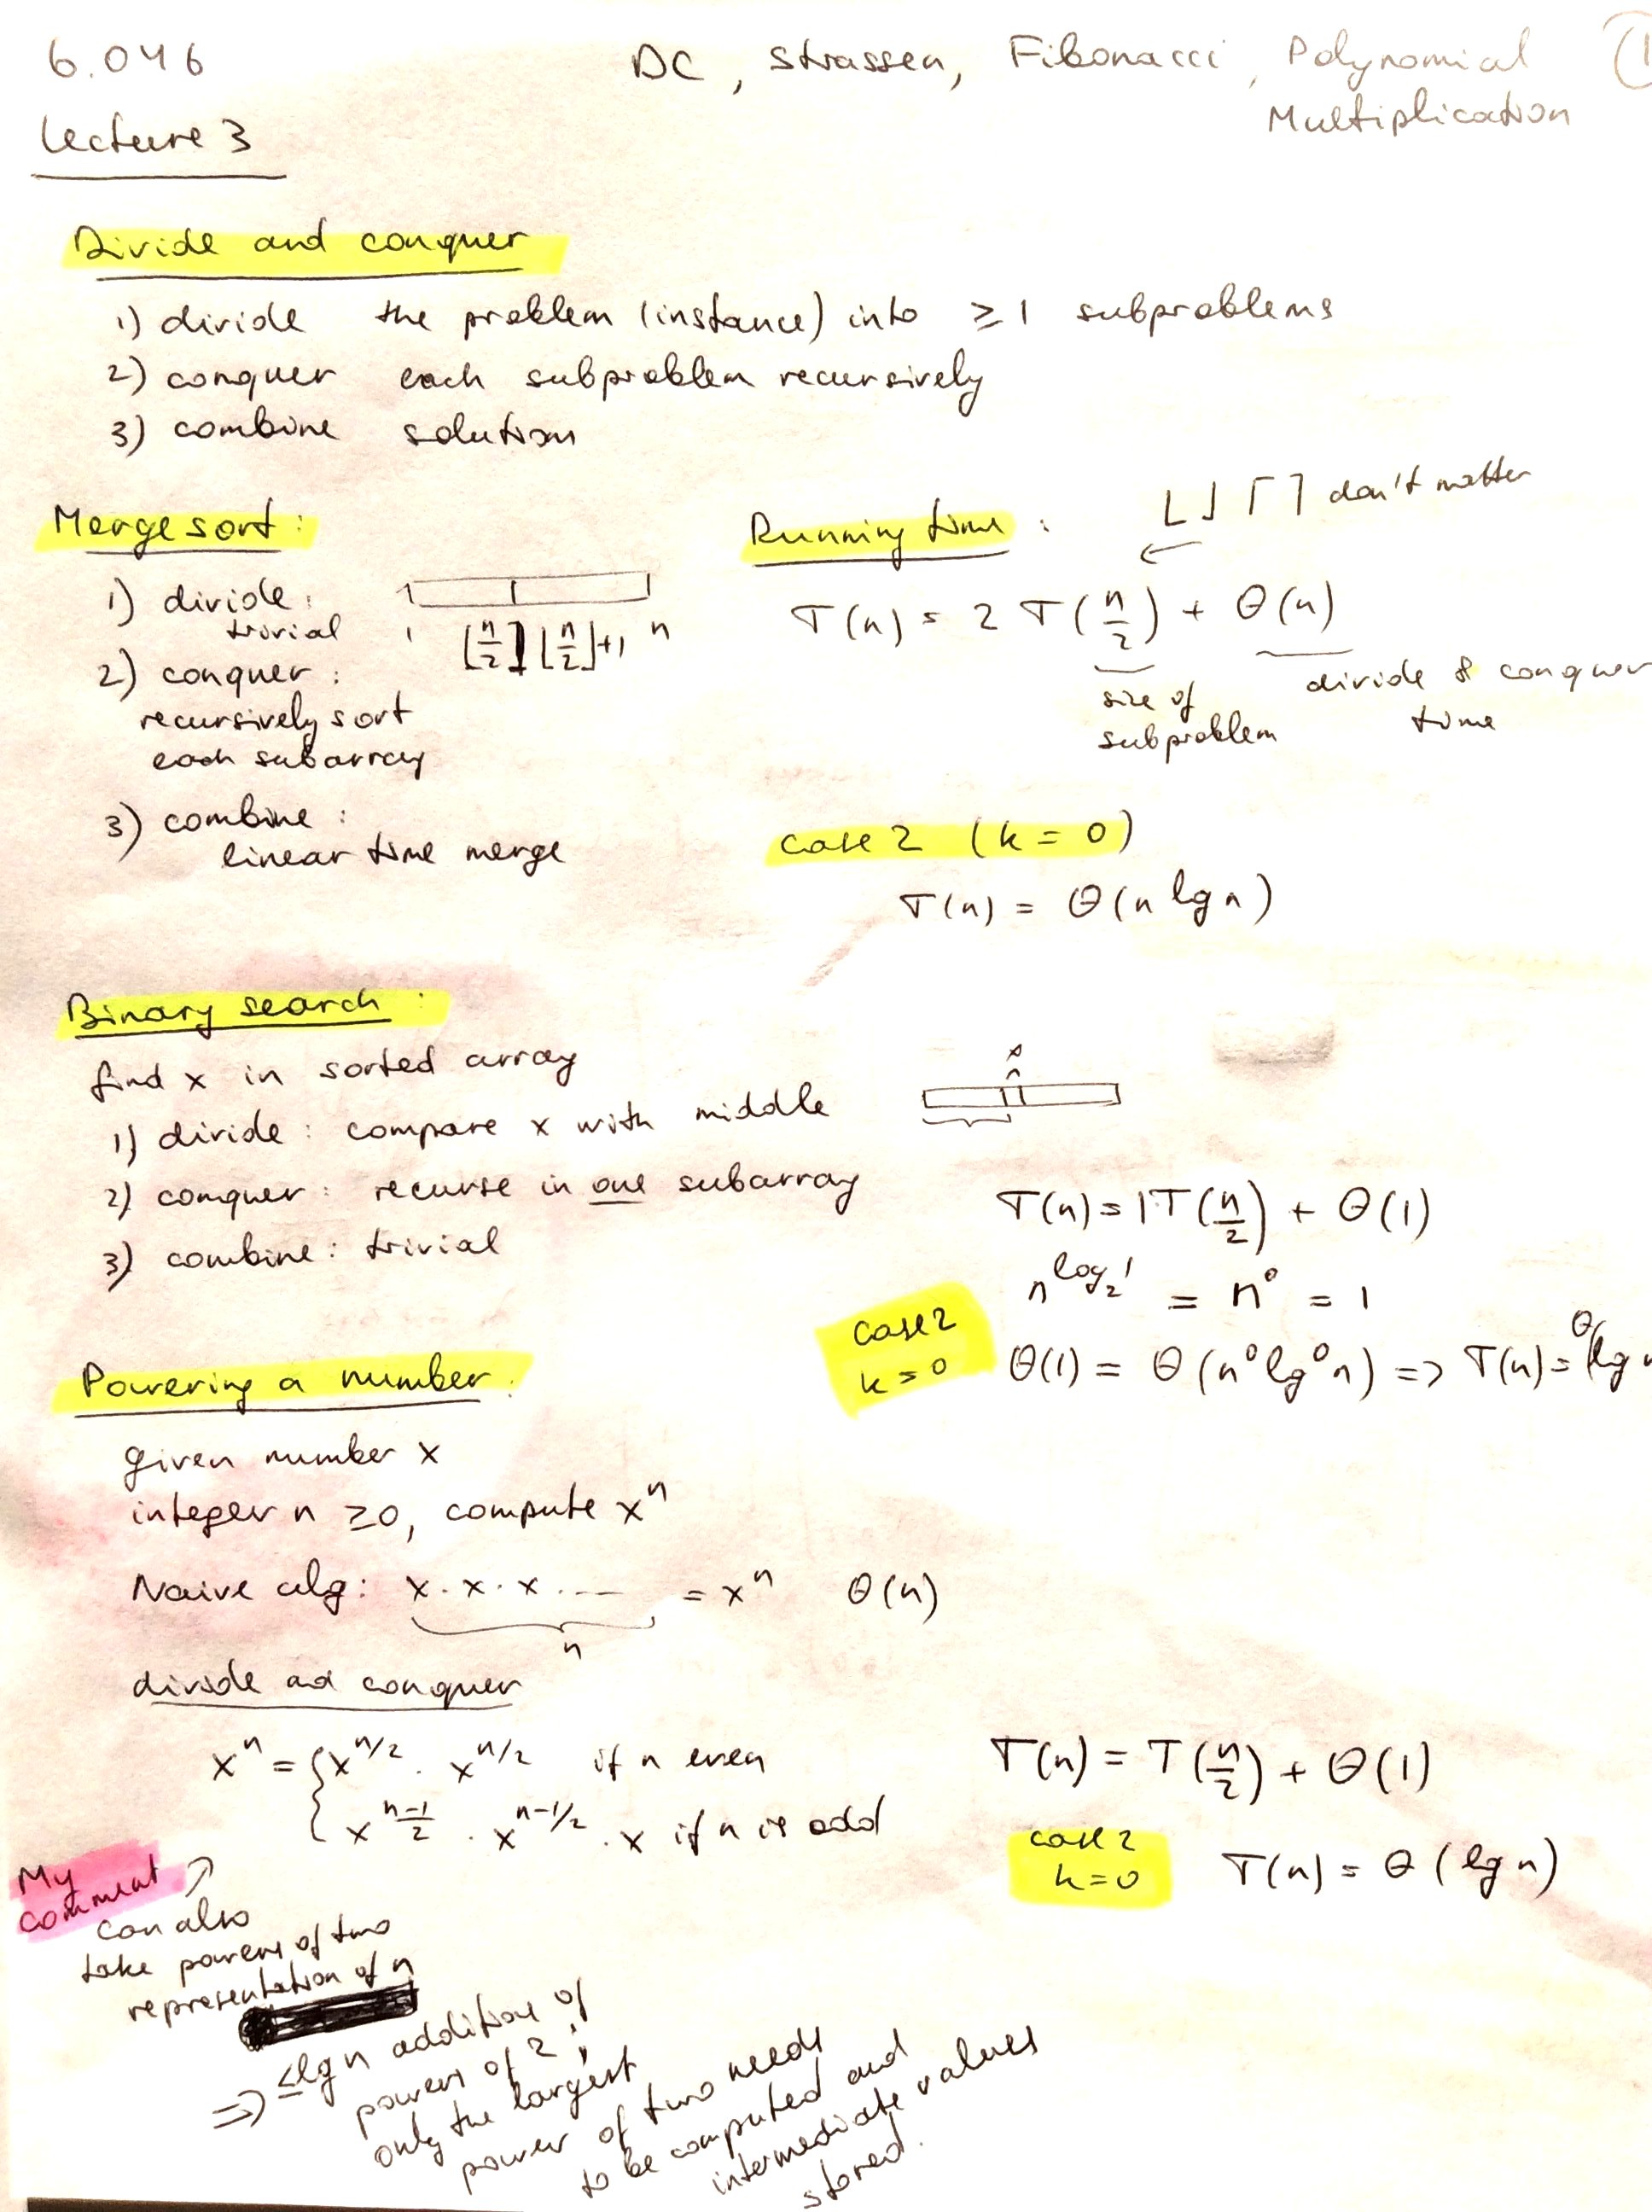 6.046
DC, Strassen, Fibonacci, Polynomial
Multiplication
1
Lecture 3
Divide and conquer
1) divide the problem (instance) into ≥ 1 subproblems
2) conquer each subproblem recursively
3) combine solution
Merge sort:
1) divide:
trivial
1 ⌊n/2⌋ ⌊n/2⌋+1 n
2) conquer:
recursively sort
each subarray
3) combine:
linear time merge
Running time:
⌊⌋ ⌈⌉ don't matter
T(n) = 2 T(n/2) + Θ(n)
size of
subproblem
divide & conquer
time
case 2 (k = 0)
T(n) = Θ(n lg n)
Binary search:
find x in sorted array
1) divide: compare x with middle
2) conquer: recurse in one subarray
3) combine: trivial
x
T(n) = 1T(n/2) + Θ(1)
n^log₂1 = n⁰ = 1
case 2
k=0
Θ(1) = Θ(n⁰lg⁰n) => T(n) = Θ(lg n
Powering a number:
given number x
integer n ≥0, compute xⁿ
Naive alg: x · x · x · ... = xⁿ Θ(n)
n
divide ad conquer
xⁿ = { x^n/2 · x^n/2 if n even
{ x^(n-1)/2 · x^n-1/2 · x if n is odd
T(n) = T(n/2) + Θ(1)
case 2
k=0
T(n) = Θ(lg n)
My
comment
can also
take powers of two
representation of n
=> ≤lg n addition of
powers of 2;
only the largest
power of two needs
to be computed and
intermediate values
stored.